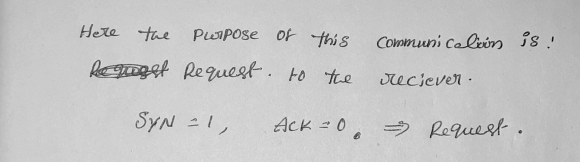 Here the purpose of this communication is :
Request. to the reciever.
SYN = 1, ACK = 0. ⇒ Request.